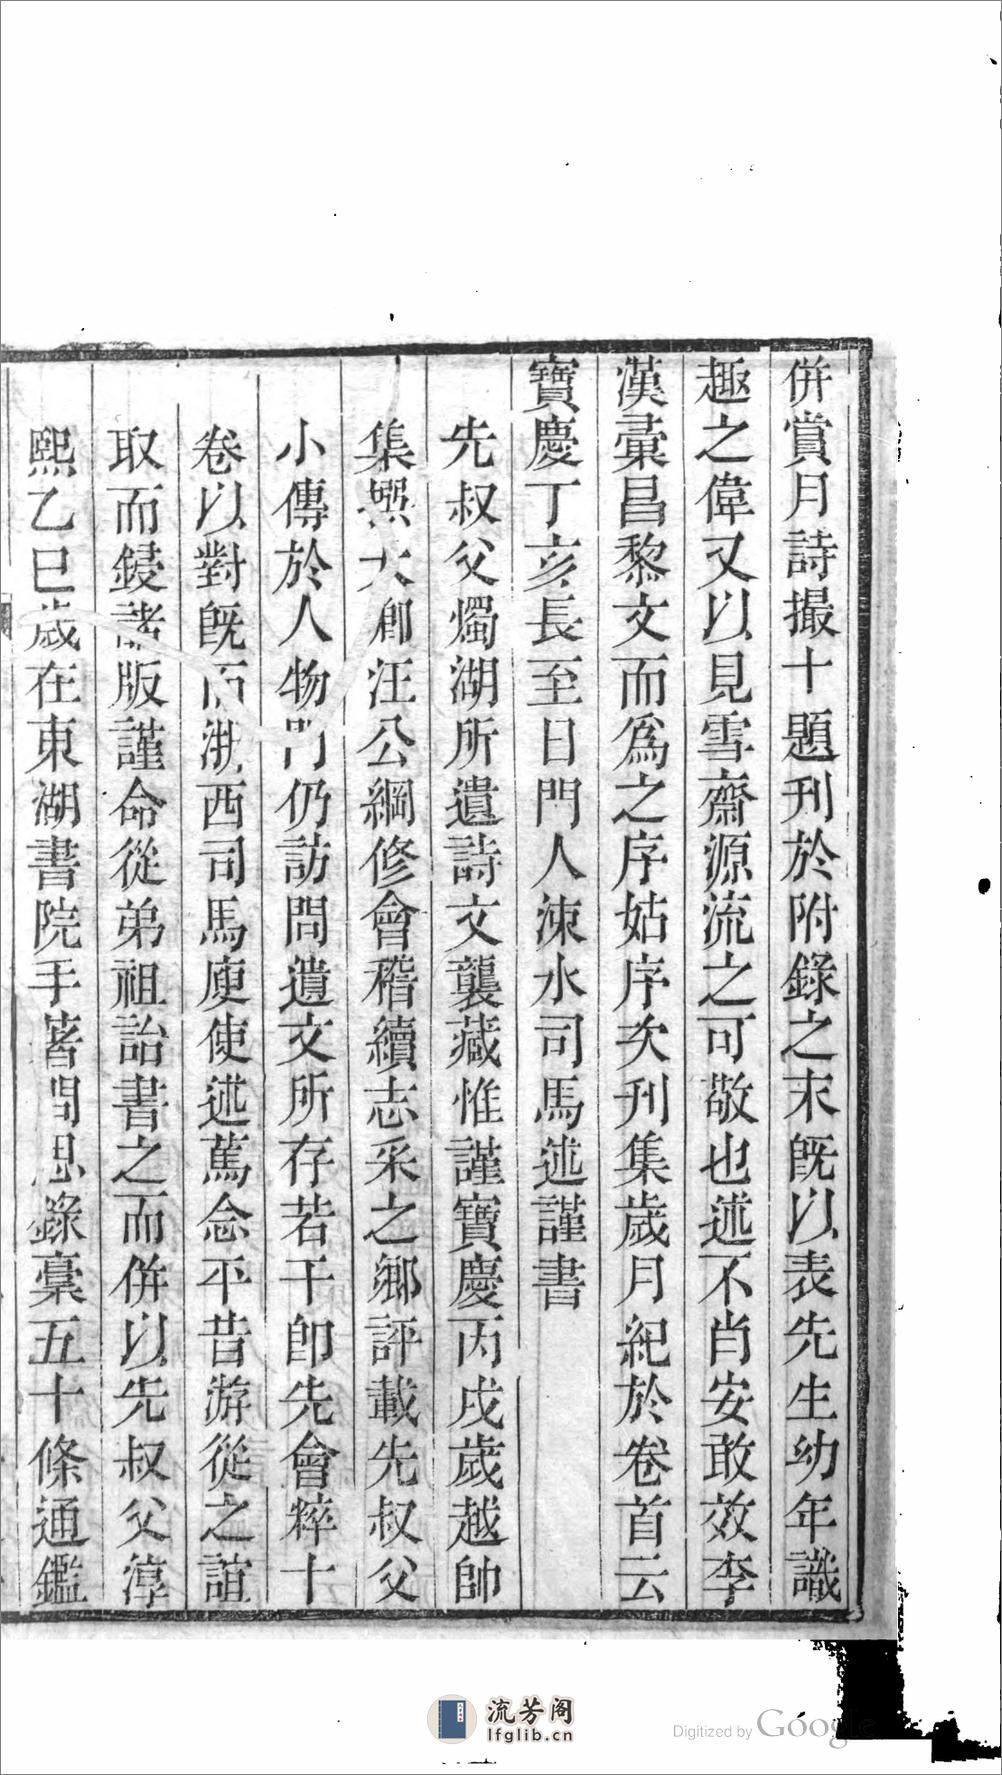 併賞月詩撮十題刊於附錄之末既以表先生幼年識
趣之偉又以見雪齋源流之可敬也述不肖安敢效李
漢彙昌黎文而爲之序姑序次刊集歲月紀於卷首云
寶慶丁亥長至日門人涑水司馬述謹書
先叔父燭湖所遺詩文襲藏惟謹寶慶丙戌歲越帥
集㷩大卿汪公綱修會稽續志采之鄉評載先叔父
小傳於人物門仍訪問遺文所存若干卽先會粹十
卷以對旣而浙西司馬庾使述篤念平昔游從之誼
取而鋟諸版謹命從弟祖詒書之而併以先叔父淳
熙乙巳歲在東湖書院手著問思錄稾五十條通鑑
流芳阁
lfglib.cn
Digitized by Google